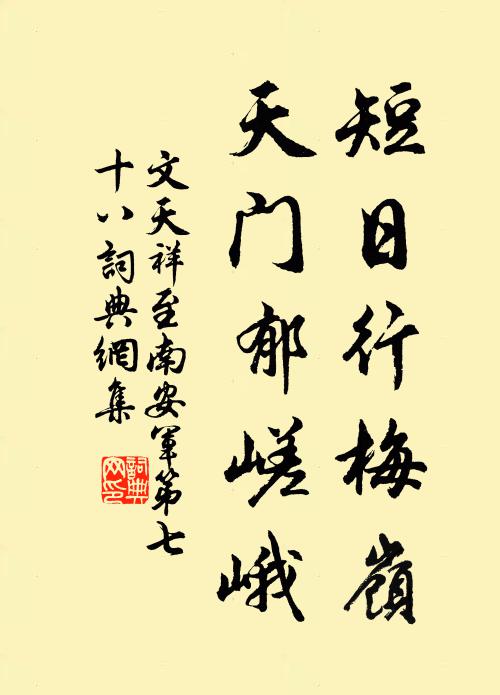 短日行梅嶺
天门郁嵯峨
文天祥至南安軍第七
十八詞典網集
詞典
网印